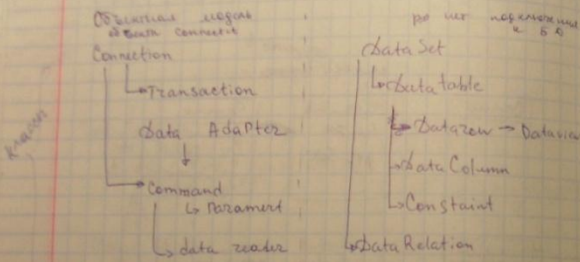 Объектная модель
объекта connectit
Connection
Transaction
Data Adapter
Command
Parament
data reader
классы
нет подключения
к БД
DataSet
Datatable
Datarew → Dataview
DataColumn
Constaint
DataRelation